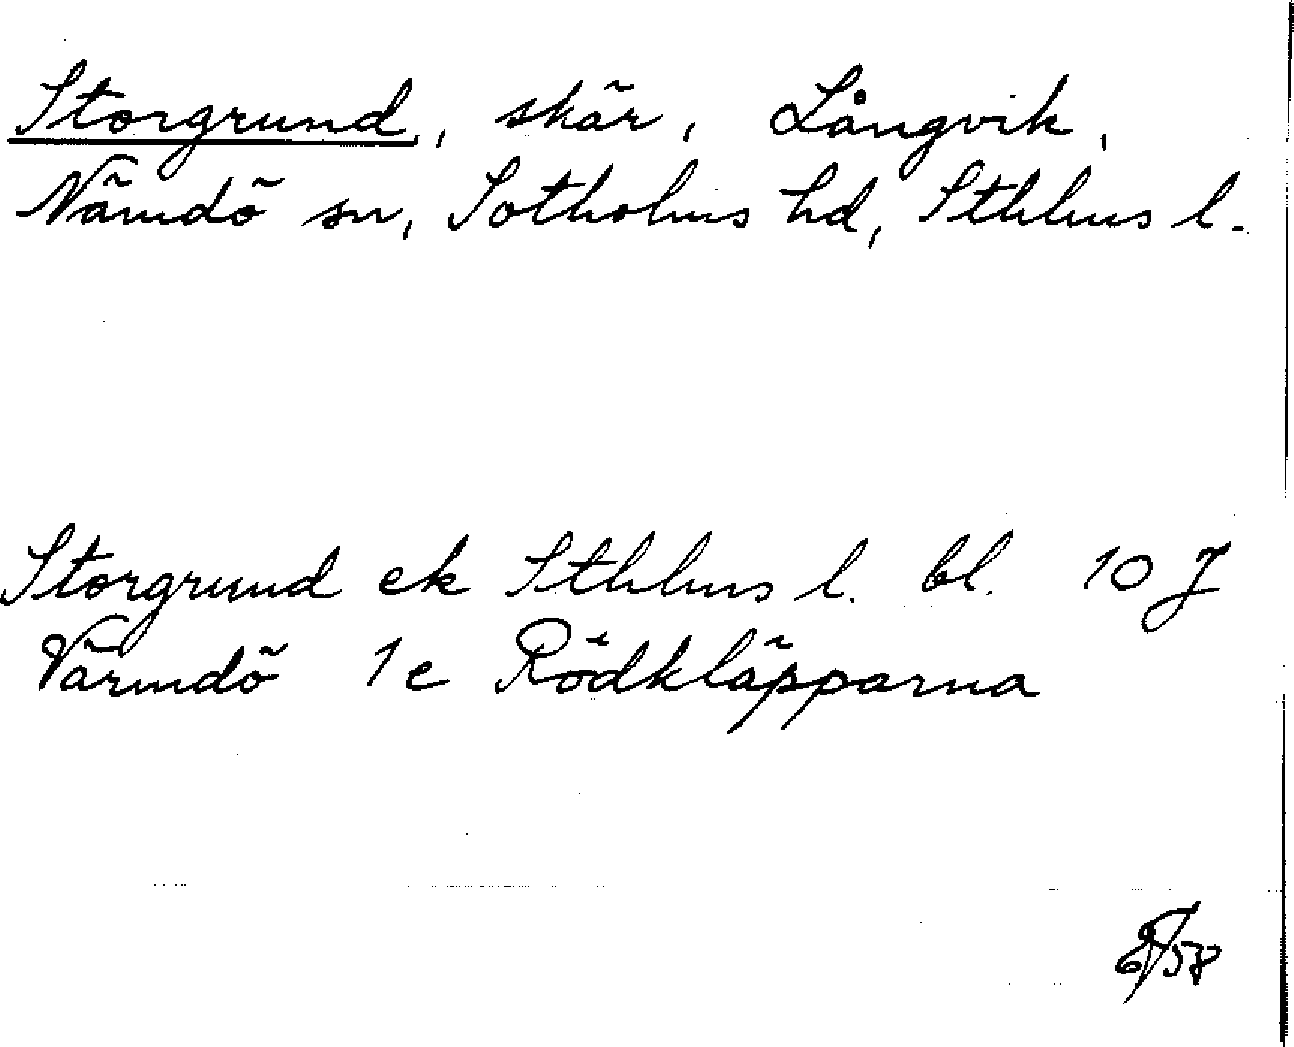 Storgrund, skär, Långvik,
Nämdö sn, Sotholms hd, Sthlms l.
Storgrund ek Sthlms l. bl. 10 J
Värmdö 1e Rödkläpparna